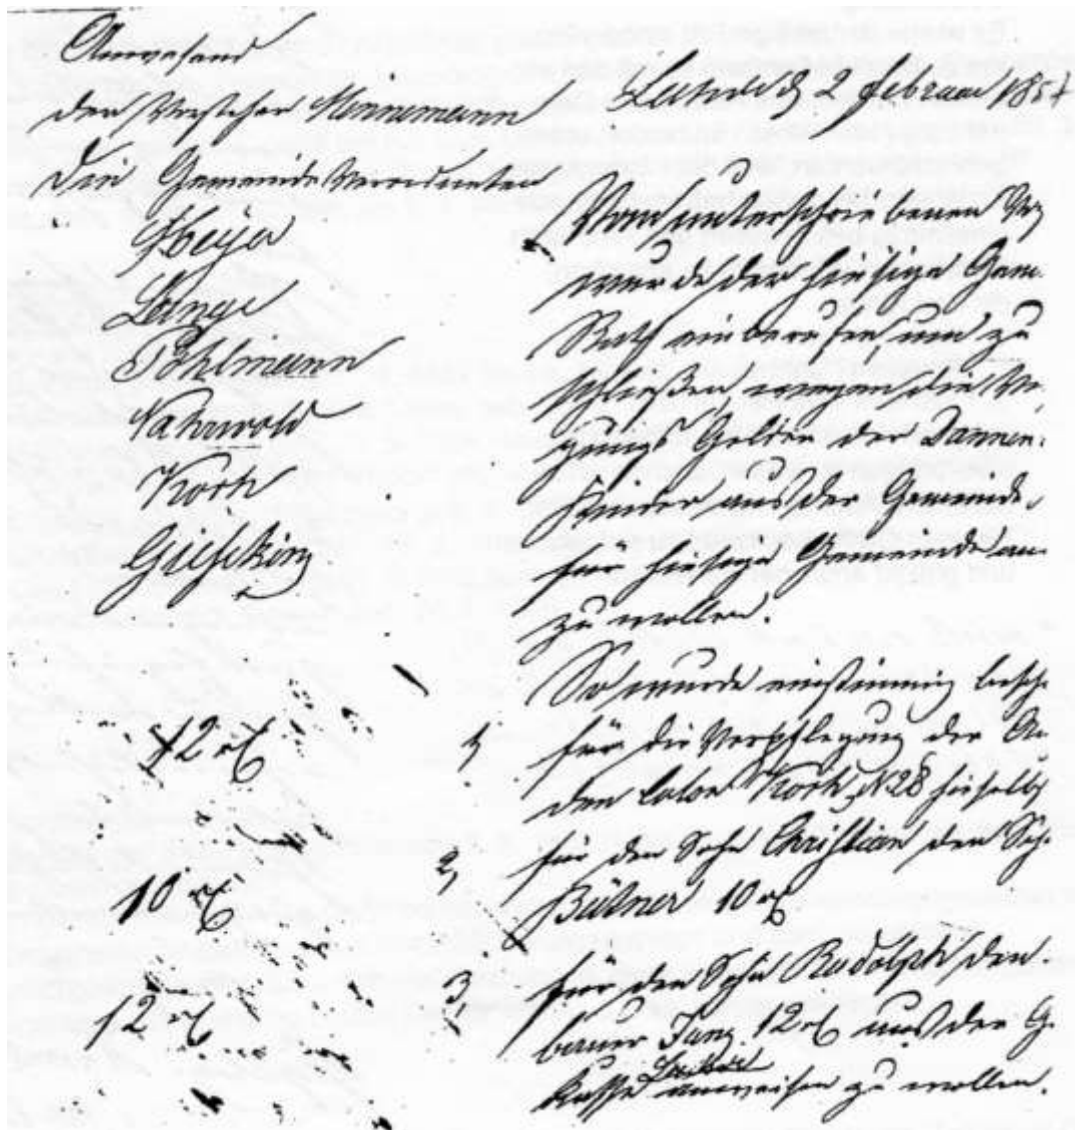 Anwesend
der Vorsteher Nonnemann
Die Gemeinde Verordneten
Meyer
Lange
Pohlmann
Nahrwold
Korth
Gieseking
d 2 Februar 185
Vom unterschriebenen Vor
wurde der hiesige Gem.
Rath einberufen, um zu
schließen, wegen die Ver,
gungs Gelder der Dannen.
Kinder aus der Gemeinde,
für hiesige Gemeinde an.
zu wollen.
So wurde einstimmig besch.
12 rt 1, für die Verpflegung der
den Colon Korth, N 28 hieselbst
2, für den Sohn Christian den Sch.
10 rt Bütner 10 rt
3, für den Sohn Rudolph den.
12 rt bauer 12 rt aus der G.
Kasse anweisen zu wollen.